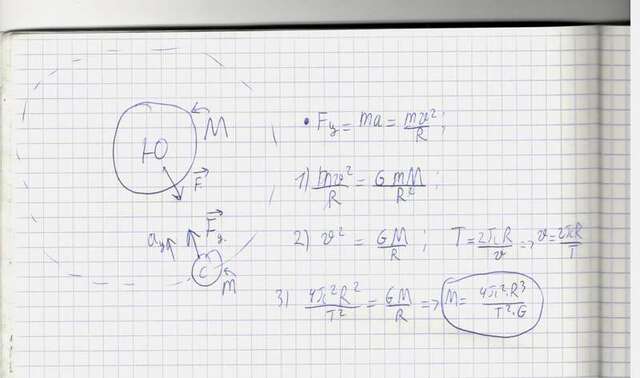 Ю
M
F
Fy.
ay
C
m
• Fц = ma = mv²/R;
1) mv²/R = GmM/R²;
2) v² = GM/R; T = 2πR/v => v = 2πR/T
3) 4π²R²/T² = GM/R => M = 4π²·R³/T²·G